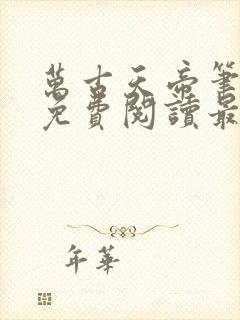 萬古天帝筆
免費閱讀最
年華